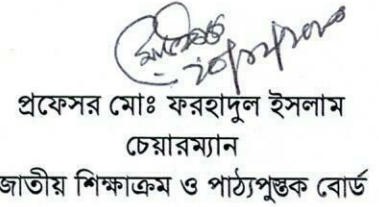 প্রফেসর মোঃ ফরহাদুল ইসলাম
চেয়ারম্যান
জাতীয় শিক্ষাক্রম ও পাঠ্যপুস্তক বোর্ড